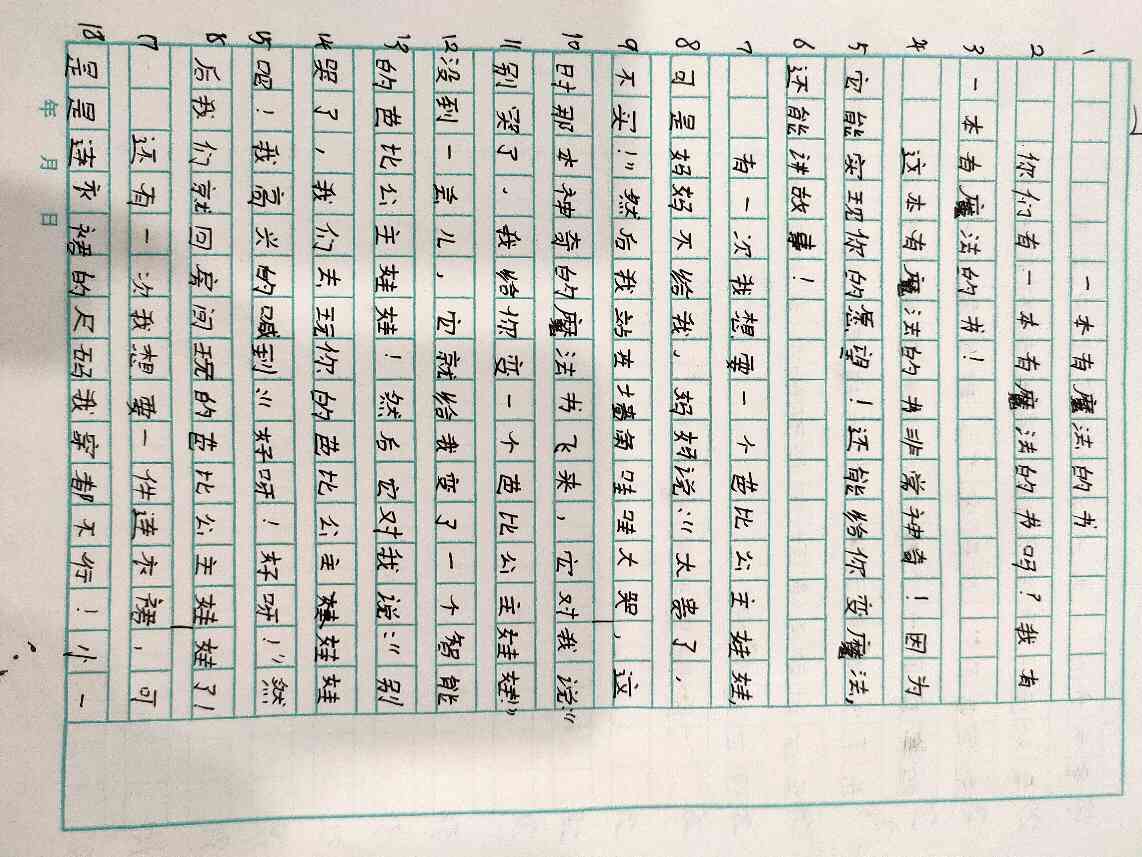 1 一本有魔法的书
2 你们有一本有魔法的书吗?我有
3 一本有魔法的书!
4 这本有魔法的书非常神奇!因为
5 它能实现你的愿望!还能给你变魔法,
6 还能讲故事!
7 有一次我想要一个芭比公主娃娃,
8 可是妈妈不给我,妈妈说:“太贵了,
9 不买!”然后我站在墙角哇哇大哭,这
10 时那本神奇的魔法书飞来,它对我说:“
11 别哭了,我给你变一个芭比公主娃娃!”
12 没到一会儿,它就给我变了一个智能
13 的芭比公主娃娃!然后它对我说:“别
14 哭了,我们去玩你的芭比公主娃娃
15 吧!我高兴的喊到:“好呀!好呀!”然
16 后我们就回房间玩的芭比公主娃娃了!
17 还有一次我想要一件连衣裙,可
18 是是连衣裙的尺码我穿都不行!小一
年 月 日